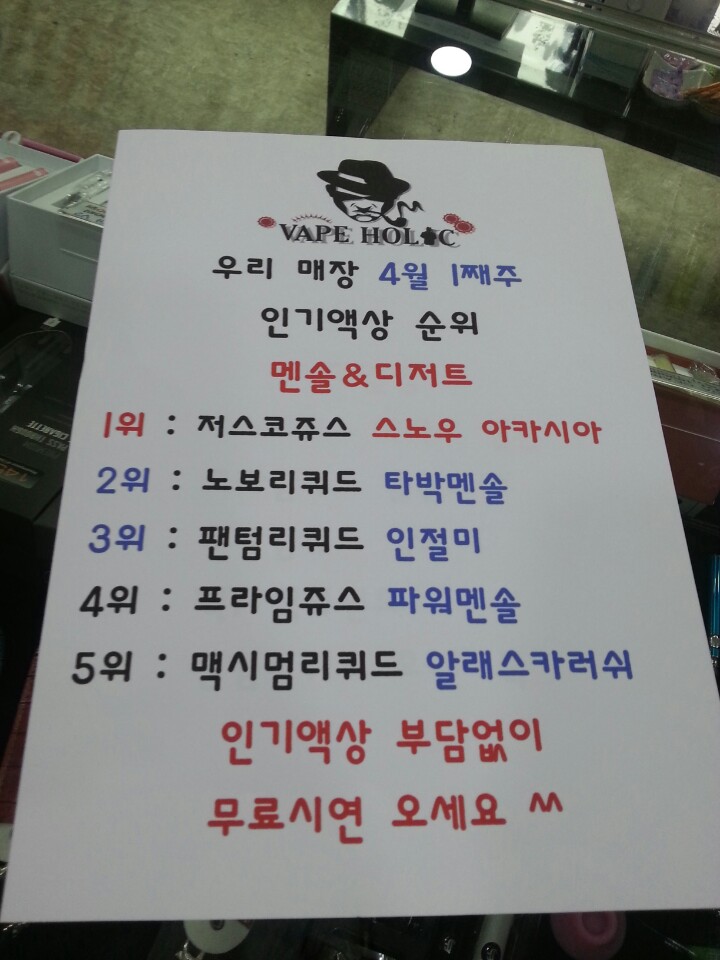 VAPE HOLIC
우리 매장 4월 1째주
인기액상 순위
멘솔&디저트
1위 : 저스코쥬스 스노우 아카시아
2위 : 노보리퀴드 타박멘솔
3위 : 팬텀리퀴드 인절미
4위 : 프라임쥬스 파워멘솔
5위 : 맥시멈리퀴드 알래스카러쉬
인기액상 부담없이
무료시연 오세요 ^^